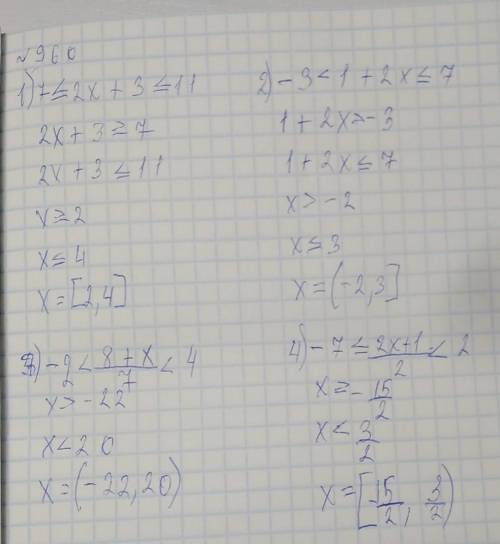 №960
1) 7 ≤ 2x + 3 ≤ 11
2x + 3 ≥ 7
2x + 3 ≤ 11
x ≥ 2
x ≤ 4
x = [2,4]
2) -3 < 1 + 2x ≤ 7
1 + 2x > -3
1 + 2x ≤ 7
x > -2
x ≤ 3
x = (-2,3]
3) -2 < (8 + x)/7 < 4
x > -22
x < 20
x = (-22,20)
4) -7 ≤ (2x+1)/2 < 2
x ≥ -15/2
x < 3/2
x = [-15/2, 3/2)